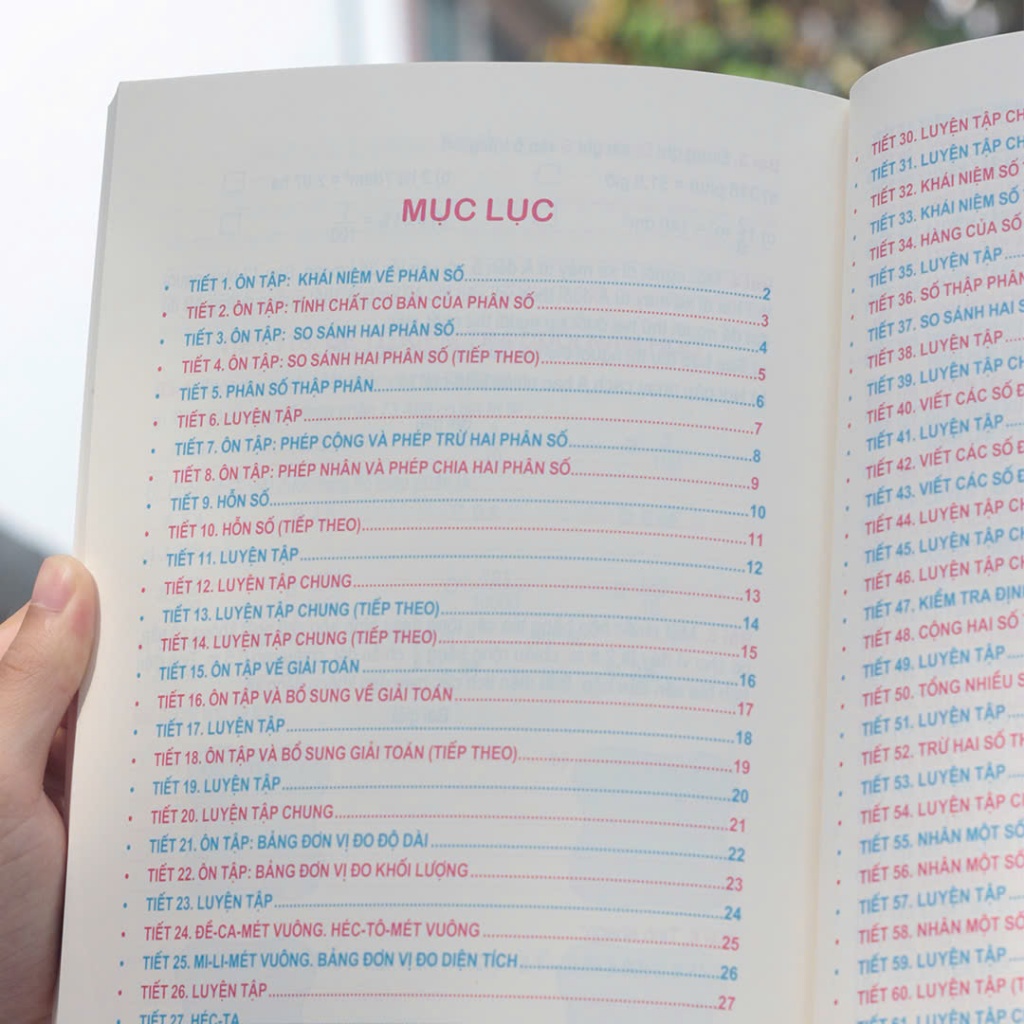 MỤC LỤC
• TIẾT 1. ÔN TẬP: KHÁI NIỆM VỀ PHÂN SỐ..........2
• TIẾT 2. ÔN TẬP: TÍNH CHẤT CƠ BẢN CỦA PHÂN SỐ..........3
• TIẾT 3. ÔN TẬP: SO SÁNH HAI PHÂN SỐ..........4
• TIẾT 4. ÔN TẬP: SO SÁNH HAI PHÂN SỐ (TIẾP THEO)..........5
• TIẾT 5. PHÂN SỐ THẬP PHÂN..........6
• TIẾT 6. LUYỆN TẬP..........7
• TIẾT 7. ÔN TẬP: PHÉP CỘNG VÀ PHÉP TRỪ HAI PHÂN SỐ..........8
• TIẾT 8. ÔN TẬP: PHÉP NHÂN VÀ PHÉP CHIA HAI PHÂN SỐ..........9
• TIẾT 9. HỖN SỐ..........10
• TIẾT 10. HỖN SỐ (TIẾP THEO)..........11
• TIẾT 11. LUYỆN TẬP..........12
• TIẾT 12. LUYỆN TẬP CHUNG..........13
• TIẾT 13. LUYỆN TẬP CHUNG (TIẾP THEO)..........14
• TIẾT 14. LUYỆN TẬP CHUNG (TIẾP THEO)..........15
• TIẾT 15. ÔN TẬP VỀ GIẢI TOÁN..........16
• TIẾT 16. ÔN TẬP VÀ BỔ SUNG VỀ GIẢI TOÁN..........17
• TIẾT 17. LUYỆN TẬP..........18
• TIẾT 18. ÔN TẬP VÀ BỔ SUNG GIẢI TOÁN (TIẾP THEO)..........19
• TIẾT 19. LUYỆN TẬP..........20
• TIẾT 20. LUYỆN TẬP CHUNG..........21
• TIẾT 21. ÔN TẬP: BẢNG ĐƠN VỊ ĐO ĐỘ DÀI..........22
• TIẾT 22. ÔN TẬP: BẢNG ĐƠN VỊ ĐO KHỐI LƯỢNG..........23
• TIẾT 23. LUYỆN TẬP..........24
• TIẾT 24. ĐỀ-CA-MÉT VUÔNG. HÉC-TÔ-MÉT VUÔNG..........25
• TIẾT 25. MI-LI-MÉT VUÔNG. BẢNG ĐƠN VỊ ĐO DIỆN TÍCH..........26
• TIẾT 26. LUYỆN TẬP..........27
TIẾT 27. HÉC-TA
• TIẾT 30. LUYỆN TẬP CH
• TIẾT 31. LUYỆN TẬP CH
• TIẾT 32. KHÁI NIỆM SỐ
• TIẾT 33. KHÁI NIỆM SỐ
• TIẾT 34. HÀNG CỦA SỐ
• TIẾT 35. LUYỆN TẬP
• TIẾT 36. SỐ THẬP PHÂN
• TIẾT 37. SO SÁNH HAI
• TIẾT 38. LUYỆN TẬP
• TIẾT 39. LUYỆN TẬP CH
• TIẾT 40. VIẾT CÁC SỐ Đ
• TIẾT 41. LUYỆN TẬP
• TIẾT 42. VIẾT CÁC SỐ Đ
• TIẾT 43. VIẾT CÁC SỐ Đ
• TIẾT 44. LUYỆN TẬP CH
• TIẾT 45. LUYỆN TẬP CH
• TIẾT 46. LUYỆN TẬP CH
• TIẾT 47. KIỂM TRA ĐỊN
• TIẾT 48. CỘNG HAI SỐ
• TIẾT 49. LUYỆN TẬP
• TIẾT 50. TỔNG NHIỀU S
• TIẾT 51. LUYỆN TẬP
• TIẾT 52. TRỪ HAI SỐ TH
• TIẾT 53. LUYỆN TẬP
• TIẾT 54. LUYỆN TẬP CH
• TIẾT 55. NHÂN MỘT SỐ
• TIẾT 56. NHÂN MỘT SỐ
• TIẾT 57. LUYỆN TẬP
• TIẾT 58. NHÂN MỘT SỐ
• TIẾT 59. LUYỆN TẬP
• TIẾT 60. LUYỆN TẬP (T
TIẾT 61. LUYỆN TẬP C